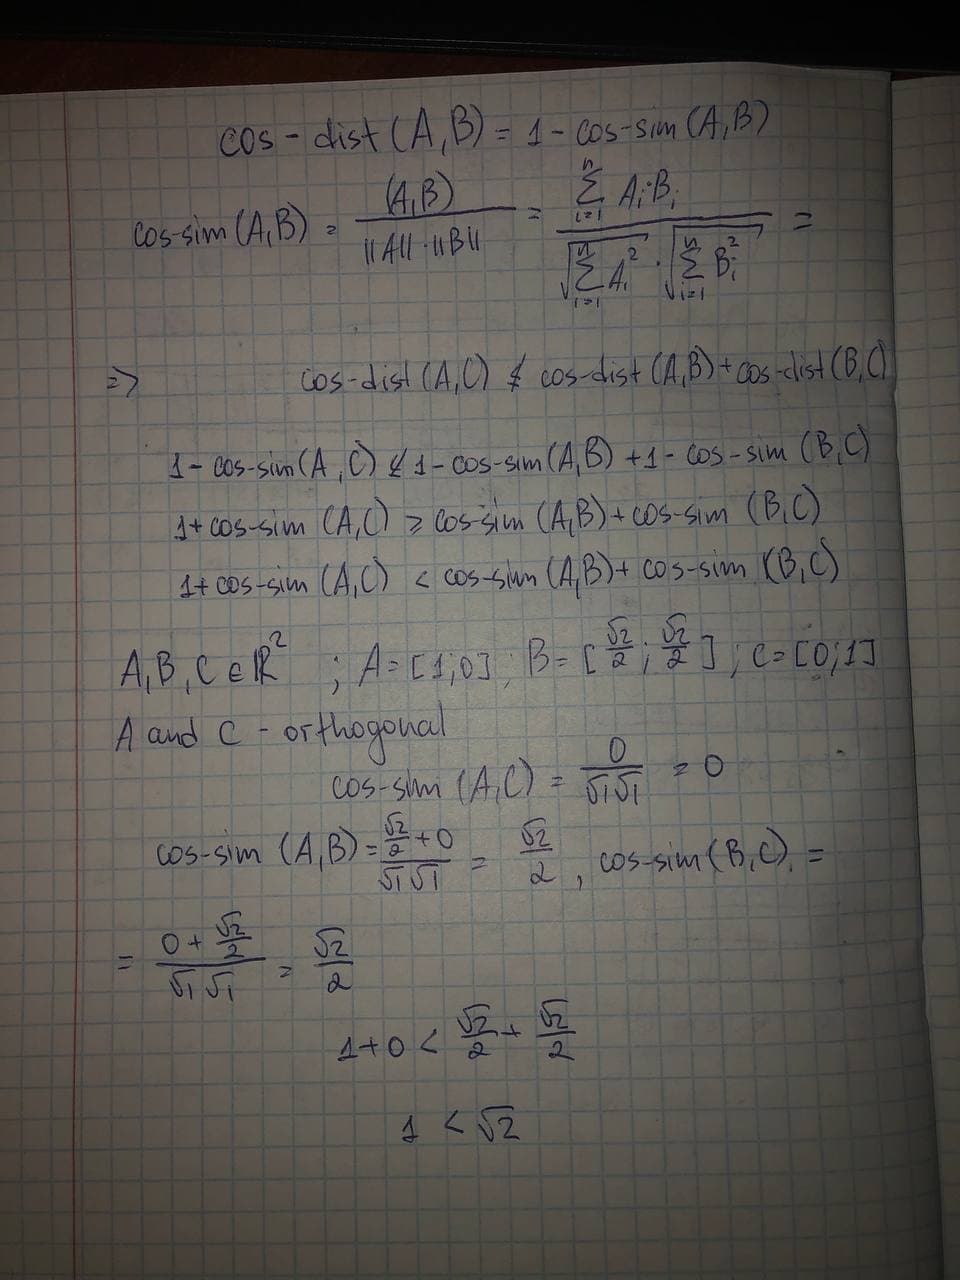 cos-dist(A,B) = 1 - cos-sim(A,B)
cos-sim(A,B) = (A,B) / ||A||·||B|| = ∑_{i=1}^{n} A_i·B_i / √(∑_{i=1}^{n} A_i^2) · √(∑_{i=1}^{n} B_i^2) =
=> cos-dist(A,C) ≰ cos-dist(A,B) + cos-dist(B,C)
1 - cos-sim(A,C) ≰ 1 - cos-sim(A,B) + 1 - cos-sim(B,C)
1 + cos-sim(A,C) ≥ cos-sim(A,B) + cos-sim(B,C)
1 + cos-sim(A,C) < cos-sim(A,B) + cos-sim(B,C)
A,B,C ∈ ℝ^2 ; A = [1;0] ; B = [√2/2 ; √2/2] ; C = [0;1]
A and C - orthogonal
cos-sim(A,C) = 0 / √1√1 = 0
cos-sim(A,B) = (√2/2 + 0) / √1√1 = √2/2 , cos-sim(B,C) =
= (0 + √2/2) / √1√1 = √2/2
1+0 < √2/2 + √2/2
1 < √2